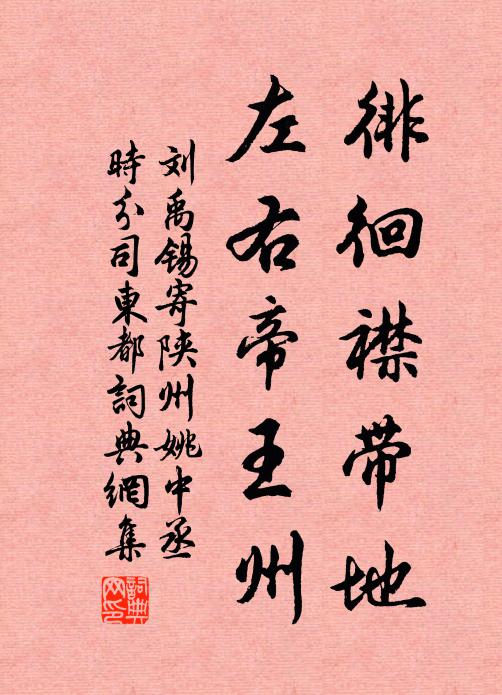 徘徊襟带地
左右帝王州
刘禹锡寄陕州姚中丞
時分司東都詞典網集
詞典网印